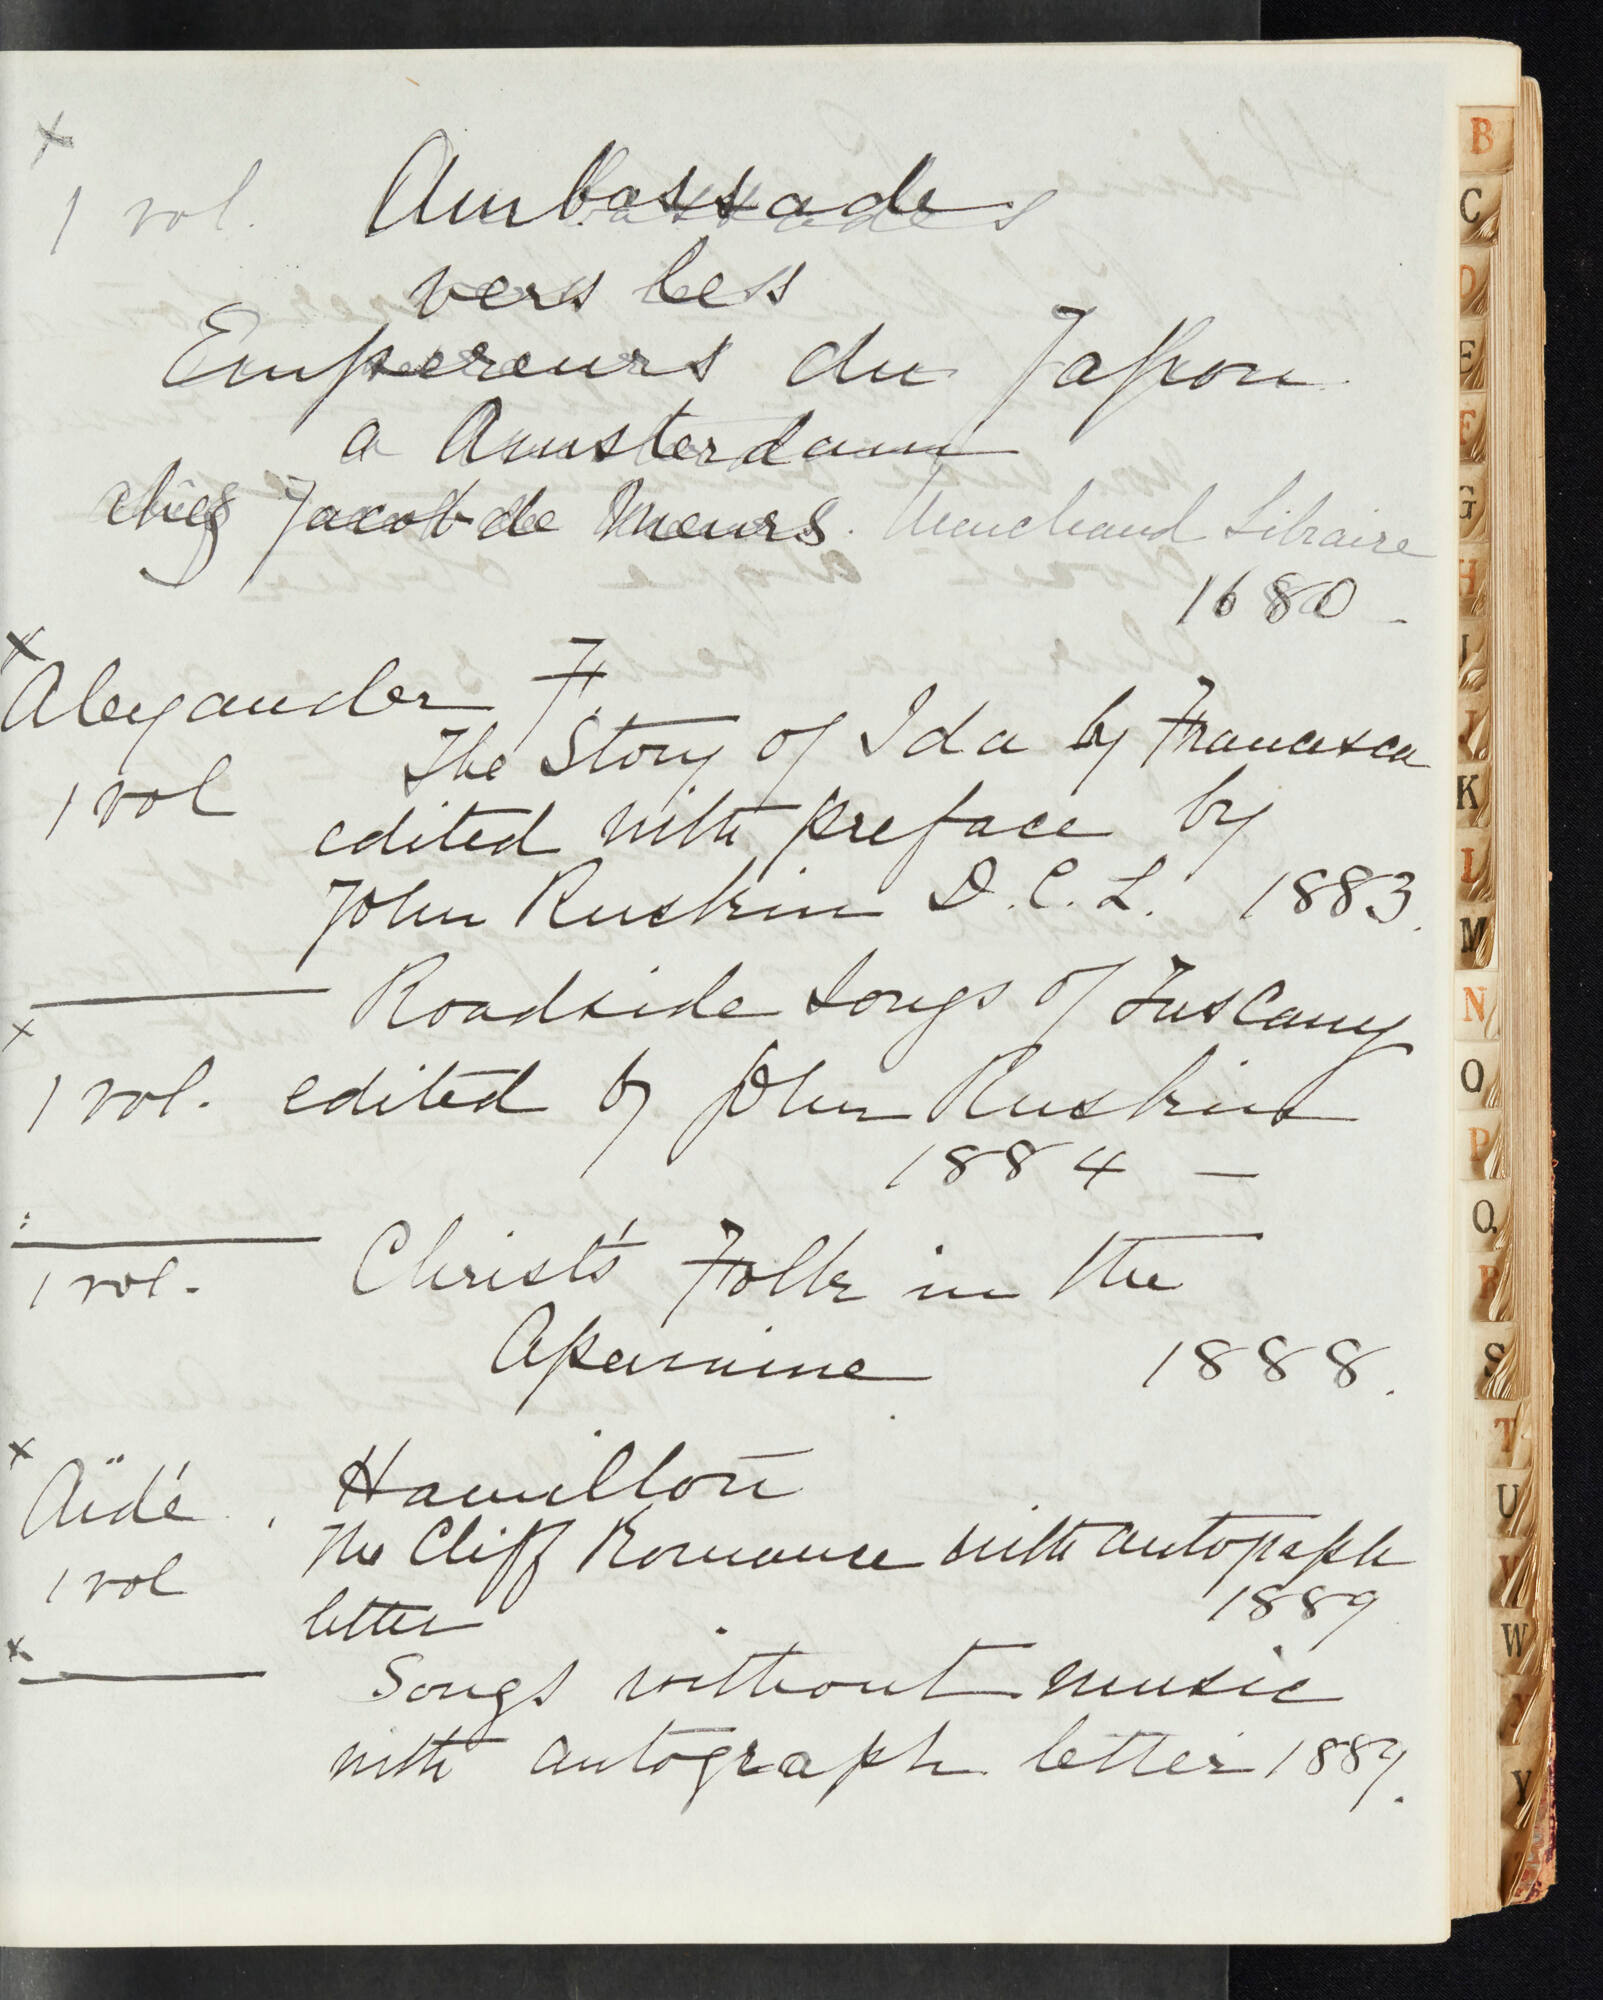 x
1 vol. Ambassades
vers les
Empereurs du Japon
a Amsterdam
chez Jacob de Meurs. Marchand Libraire
1680 -
x
Alexander F.
The Story of Ida by Francesca
1 vol
edited with preface by
John Ruskin D.C.L. 1883.
Roadside Songs of Tuscany
x
1 vol. edited by John Ruskin
1884 —
Christ's Folk in the
1 vol.
Apennine 1888.
x
Aïdé. Hamilton
The Cliff Romance with autograph
1 vol
letter 1889
x
Songs without music
with autograph letter 1889.
B
C
D
E
F
G
H
I
J
K
L
M
N
O
P
Q
R
S
T
U
V
W
X
Y